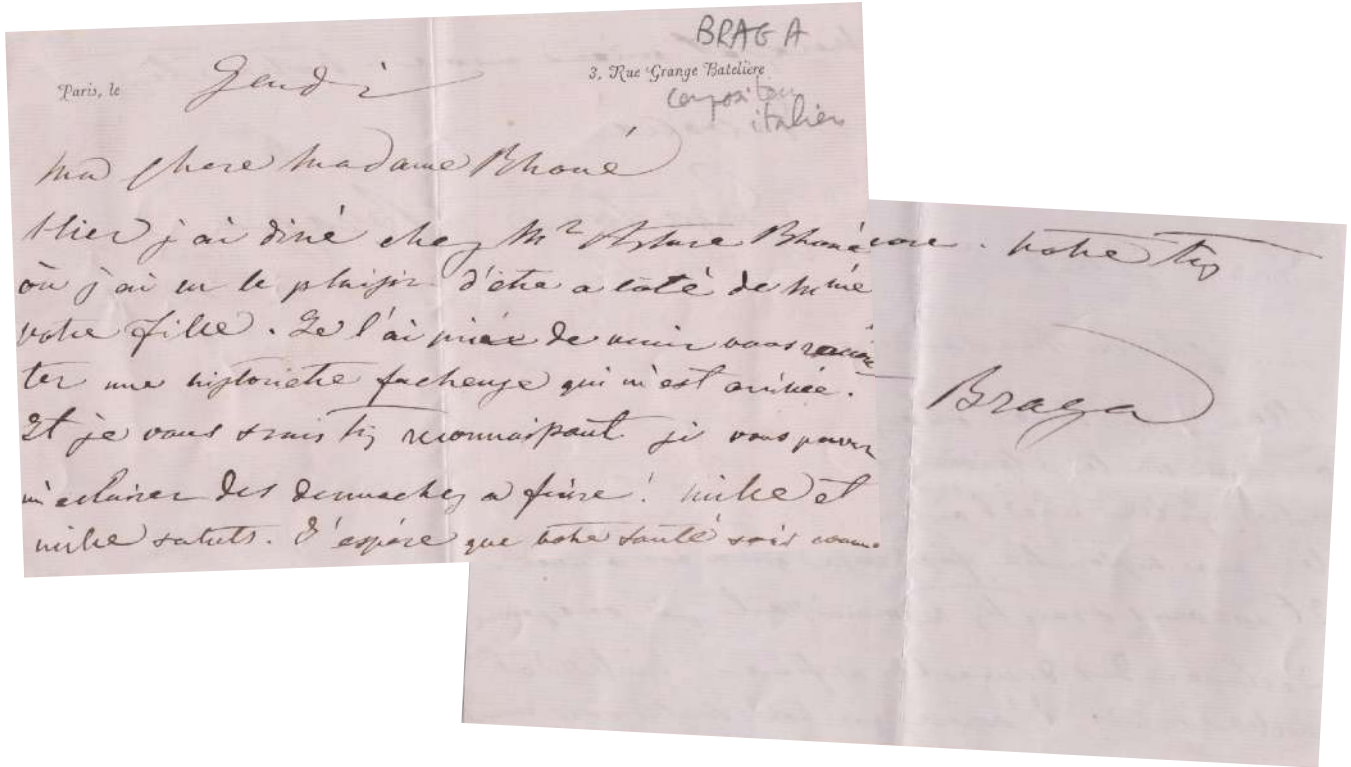 BRAGA
Paris, le Jeudi
3, Rue Grange Batelière
compositeur
italien
Ma chere Madame Rhoné
Hier j'ai diné chez Mr Arture Rhoné
où j'ai eu le plaisir d'être a coté de Mme
votre fille. Je l'ai priée de venir vous racon
ter une historiette facheuse qui m'est arrivée.
Et je vous serais très reconnaissant si vous pouvez
m'eclairer des demarches a faire! mille et
mille saluts. J'espére que votre santé sois
votre trs
Braga